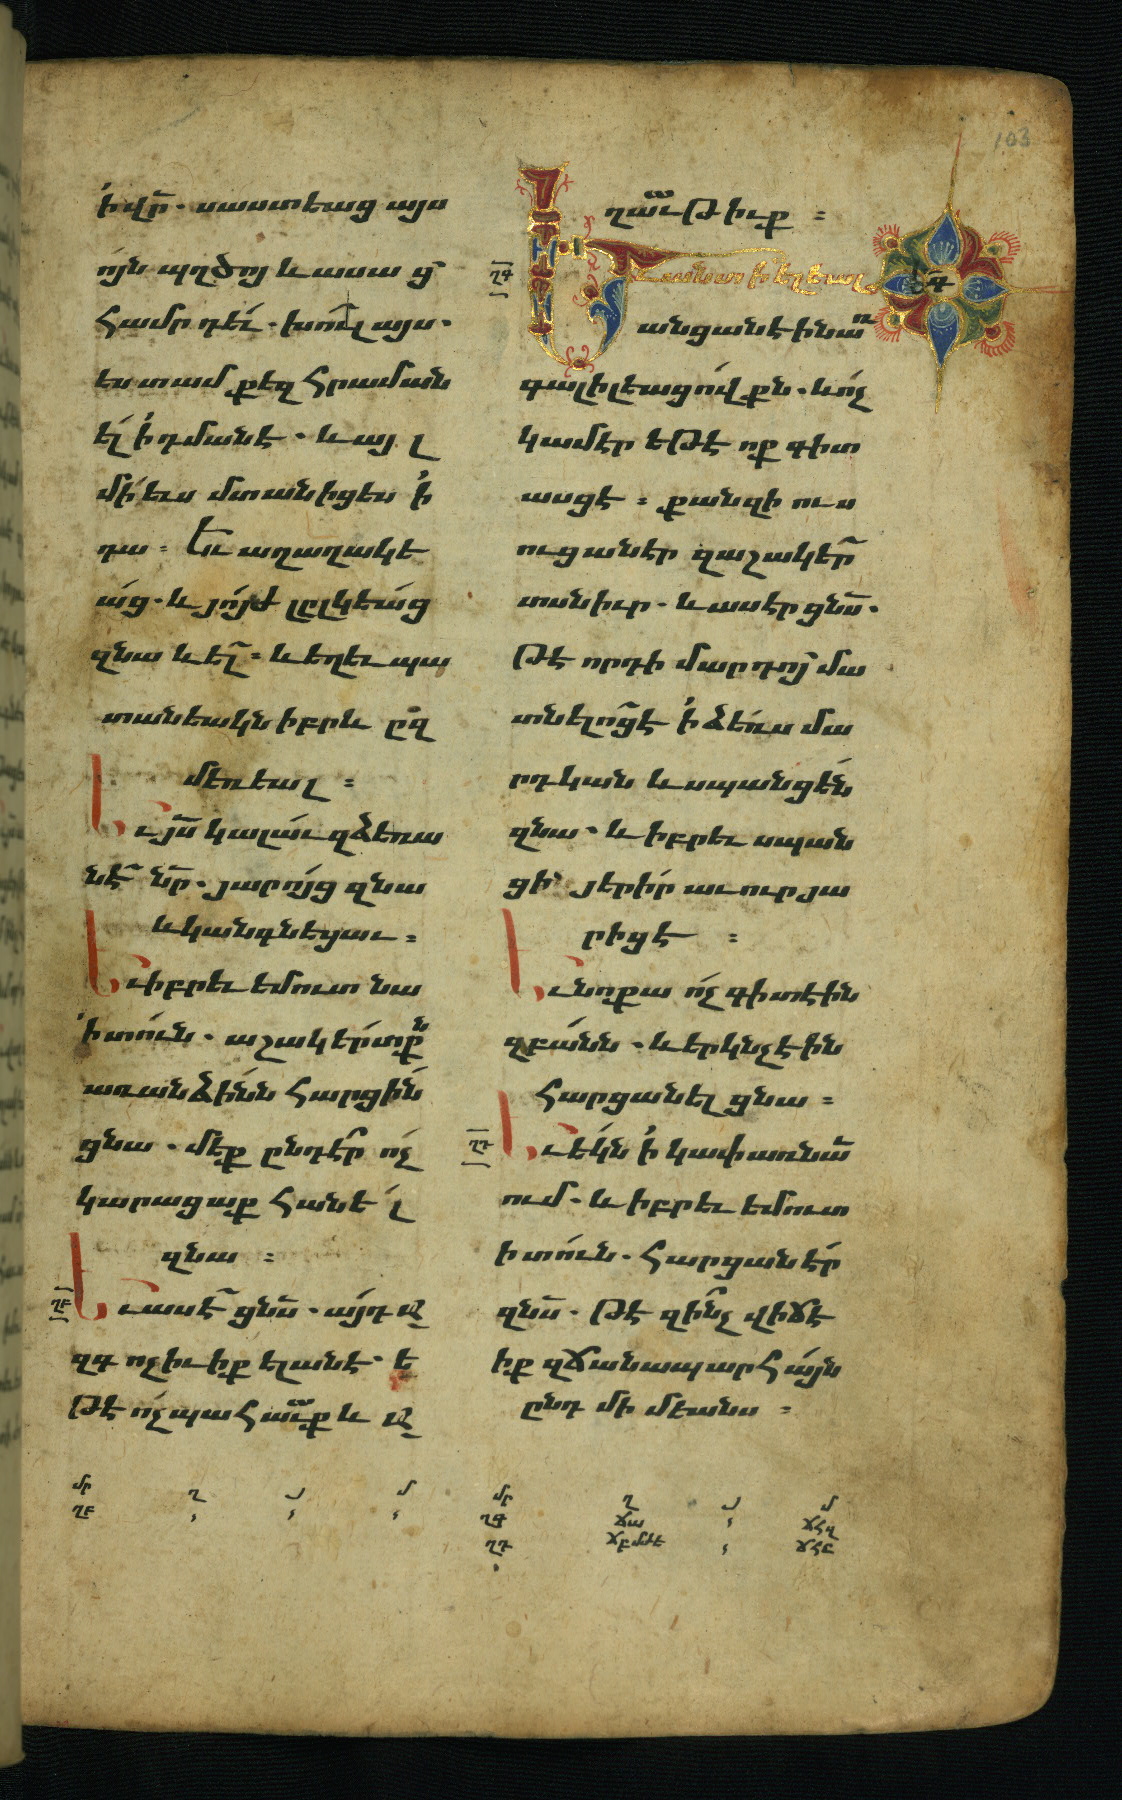 103
ի վր. սաստեաց այս
ոյն պղծոյ և ասա ց
համր դև. խուլ այս.
ես տամ քեզ հրաման
ել ի դմանէ. և այլ
մի ևս մտանիցես ի
դա: Եւ աղաղակե
աց. և յոյժ լըլկեաց
զնա և ել: և եղև պա
տանեակն իբրև ըզ
մեռեալ:
Եւ յս կալաւ զձեռա
նէ նր. յարոյց զնա
և կանգնեցաւ:
Եւ իբրև եմուտ նա
ի տուն. աշակերտքն
առանձինն հարցին
ցնա. մեք ընդէր ոչ
կարացաք հանել
զնա:
ղբ
Եւ ասէ ցնս. այդ ազ
զգ ոչ իւիք ելանէ. ե
թէ ոչ պահաւք և աղ
մր ղ յ մ
ղբ
աղաւթիւք:
ղգ
Եւ անտի ելեալ
անցանէին առ
գալիլեացովքն. և ոչ
կամէր եթէ ոք գիտ
ասցէ: քանզի ուս
ուցանէր զաշակեր
տսն իւր. և ասէր ցնս.
թէ որդի մարդոյ մա
տնելոց է ի ձեռս մա
րդկան և սպանցեն
զնա. և իբրև սպան
ցի յերիր աւուր յա
րիցէ:
Եւ նոքա ոչ գիտէին
զբանն. և երկնչէին
հարցանել ցնա:
ղդ
Եւ եկն ի կափառնա
ում. և իբրև եմուտ
ի տուն. հարցանէր
զնս. թէ զինչ վիճէ
իք զճանապարհայն
ընդ միմեանս:
մր ղ յ մ
ղգ ճա ճհզ
ղդ ճհը